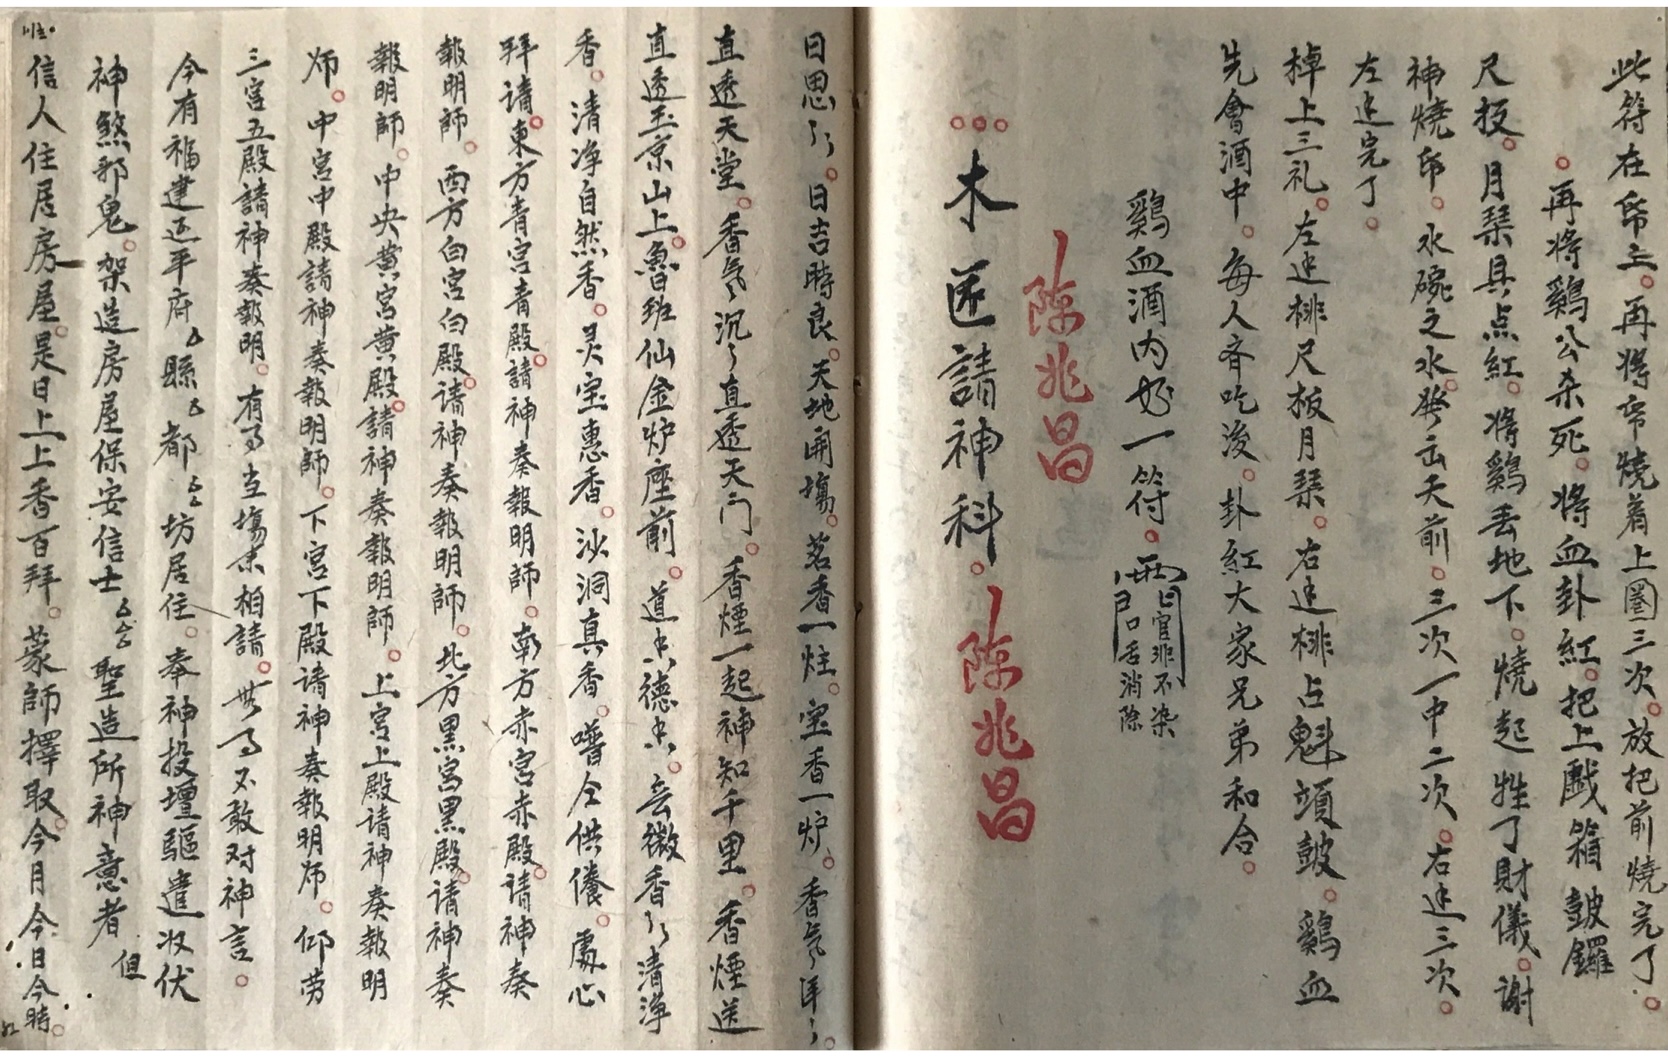 此符在帋上。再将帋燒着上圈三次。放把前燒完了。
再将鷄公杀死。将血卦紅。把上戲箱鼓鑼
尺板。月琹具点紅。将鷄丢地下。燒起牲了財儀。謝
神燒帋。水碗之水癹去天前。三次一中二次。右边三次。
左边完了。
棹上三礼。左边排尺板月琹。右边排占魁頭鼓。鷄血
先會酒中。每人斉吃后。卦紅大家兄弟和合。
鷄血酒内好一符。
官非不染
口舌消除
陳兆昌
木匠請神科。
陳兆昌
日思〻。日吉時良。天地開塲。茗香一炷。宝香一炉。香气洋〻。
直透天堂。香气沉〻直透天门。香煙一起神知千里。香煙送
直透玉京山上。魯班仙金炉座前。道香德香。无微香〻清净
香。清净自然香。灵宝惠香。沙洞真香。嚐仝供養。虔心
拜請。東方青宮青殿。請神奏報明師。南方赤宮赤殿。请神奏
報明師。西方白宮白殿。请神奏報明師。北方黒宮黒殿。请神奏
報明師。中央黄宮黄殿。請神奏報明師。上宮上殿请神奏報明
师。中宮中殿請神奏報明師。下宮下殿请神奏報明师。仰劳
三宮五殿請神奏報明。有事当塲来相請。無事不敢对神言。
今有福建延平府厶縣厶都厶厶坊居住。奉神投壇驅遣收伏
神煞邪鬼。架造房屋保安信士厶厶聖造所神意者 但
信人住居房屋。是日上上香百拜。蒙師擇取今月今日今時。